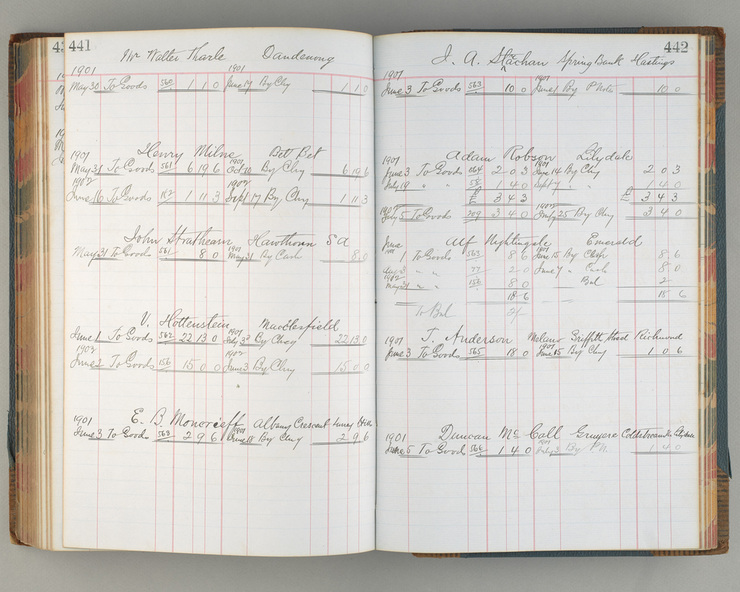 441
Mr Walter Tharle Dandenong
1901 1901
May 30 To Goods 560 1 1 0 June 17 By Chq 1 1 0
Henry Milne Bet Bet
1901 1901
May 31 To Goods 561 6 19 6 Oct 10 By Chq 6 19 6
1902 1902
June 16 To Goods 1 11 3 Sept 17 By Chq 1 11 3
John Strathearn Hawthorn S A
May 31 To Goods 561 8 0 May 31 By Cash 8 0
V. Hottenstein Macclesfield
June 1 To Goods 562 22 13 0 1901 By Cheq 22 13 0
1902 1902
June 2 To Goods 156 15 0 0 June 3 By Chq 15 0 0
E. B. Moncrieff Albany Crescent Surrey Hills
1901 1901
June 3 To Goods 563 2 9 6 June 18 By Chq 2 9 6
442
J. A. Strachan Spring Bank Hastings
1901 1901
June 3 To Goods 563 10 0 June 1 By P Note 10 0
Adam Robson Lilydale
1901 1901
June 3 To Goods 564 2 0 3 June 14 By Chq 2 0 3
July 19 " " 1 4 0 Sept 7 " " 1 4 0
£ 3 4 3 £ 3 4 3
1902 1902
July 5 To Goods 209 3 4 0 July 25 By Chq 3 4 0
Alf Nightingale Emerald
June
1 To Goods 563 8 6 June 15 By Chq 8 6
77 2 0 June 7 " Cash 8 0
1902
May 31 " " 156 8 0 Bal 2
18 6 18 6
To Bal 2/-
T. Anderson Milano Griffith Street Richmond
1901 1901
June 3 To Goods 565 18 0 June 15 By Chq 1 0 6
Duncan McCall Gruyere Coldstream Lilydale
1901 1901
June 5 To Goods 566 1 4 0 July 3 By P.N. 1 4 0